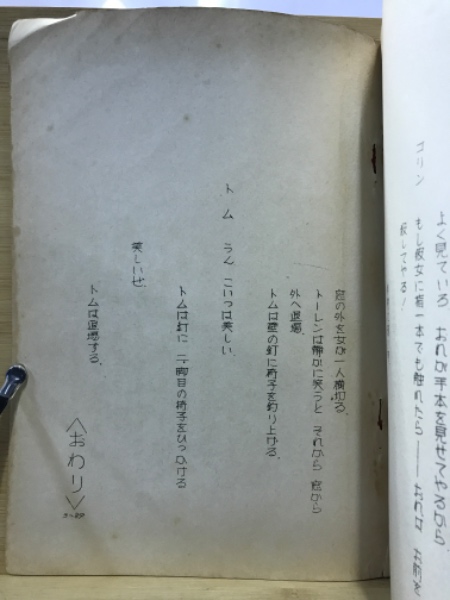 よく見ていろ おれが手本を見せてやるから、
コリン もし彼女に指一本でも触れたら――おれは お前を
殺してやる！
窓の外を女が一人横切る。
トーレンは静かに笑うと それから 窓から
外へ退場。
トムは壁の釘に椅子を釣り上げる。
トム うん こいつは美しい。
トムは釘に 二脚目の椅子をひっかける
美しいぜ。
トムは退場する。
＜おわり＞
3-27